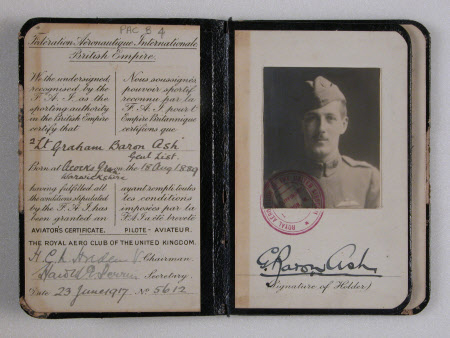 PAC B 4
Fédération Aéronautique Internationale
British Empire.
We the undersigned,
recognised by the
F.A.I. as the
sporting authority
in the British Empire
certify that
Nous soussignés
pouvoir sportif
reconnu par la
F.A.I. pour l'
Empire Britannique
certifions que
2nd Lt Graham Baron Ash
Genl List.
Born at Acocks Green on the 18 Aug 1889
Warwickshire
having fulfilled all
the conditions stipulated
by the F.A.I. has
been granted an
AVIATOR'S CERTIFICATE.
ayant rempli toutes
les conditions
imposées par la
F.A.I. a été breveté
PILOTE-AVIATEUR.
THE ROYAL AERO CLUB OF THE UNITED KINGDOM.
Chairman.
Harold E. Perrin Secretary.
Date 23 June 1917 No 5612
ROYAL AERO
G. Baron Ash
(Signature of Holder)